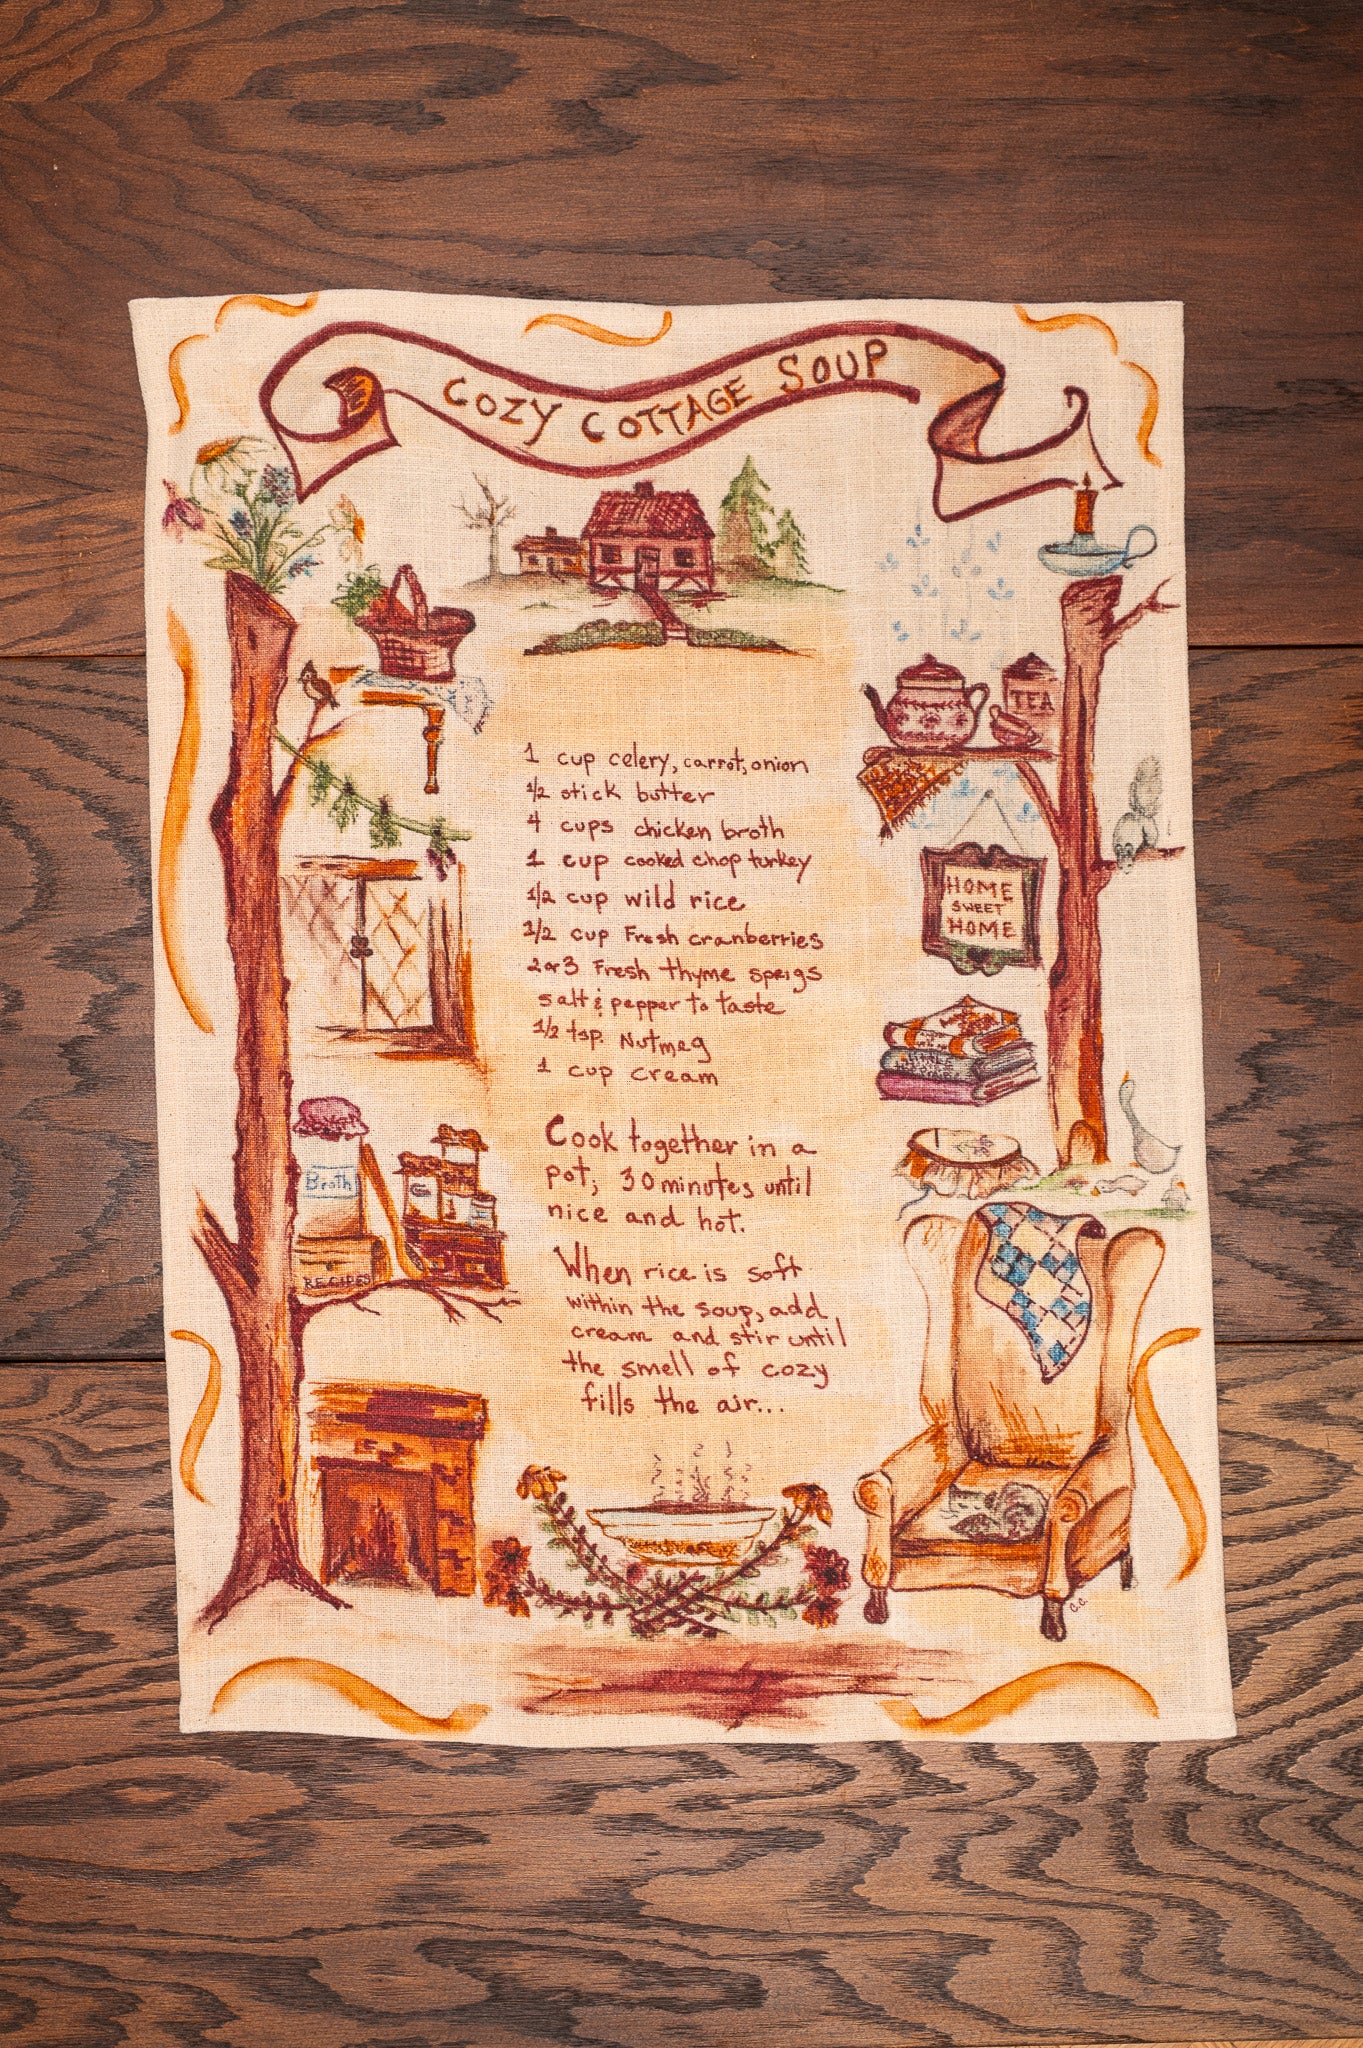 COZY COTTAGE SOUP
TEA
1 cup celery, carrot, onion
1/2 stick butter
4 cups chicken broth
1 cup cooked chop turkey
1/2 cup wild rice
1/2 cup Fresh cranberries
2 or 3 Fresh thyme sprigs
salt & pepper to taste
1/2 tsp. Nutmeg
1 cup cream
HOME
SWEET
HOME
Broth
RECIPES
Cook together in a
pot, 30 minutes until
nice and hot.
When rice is soft
within the soup, add
cream and stir until
the smell of cozy
fills the air...
C.C.